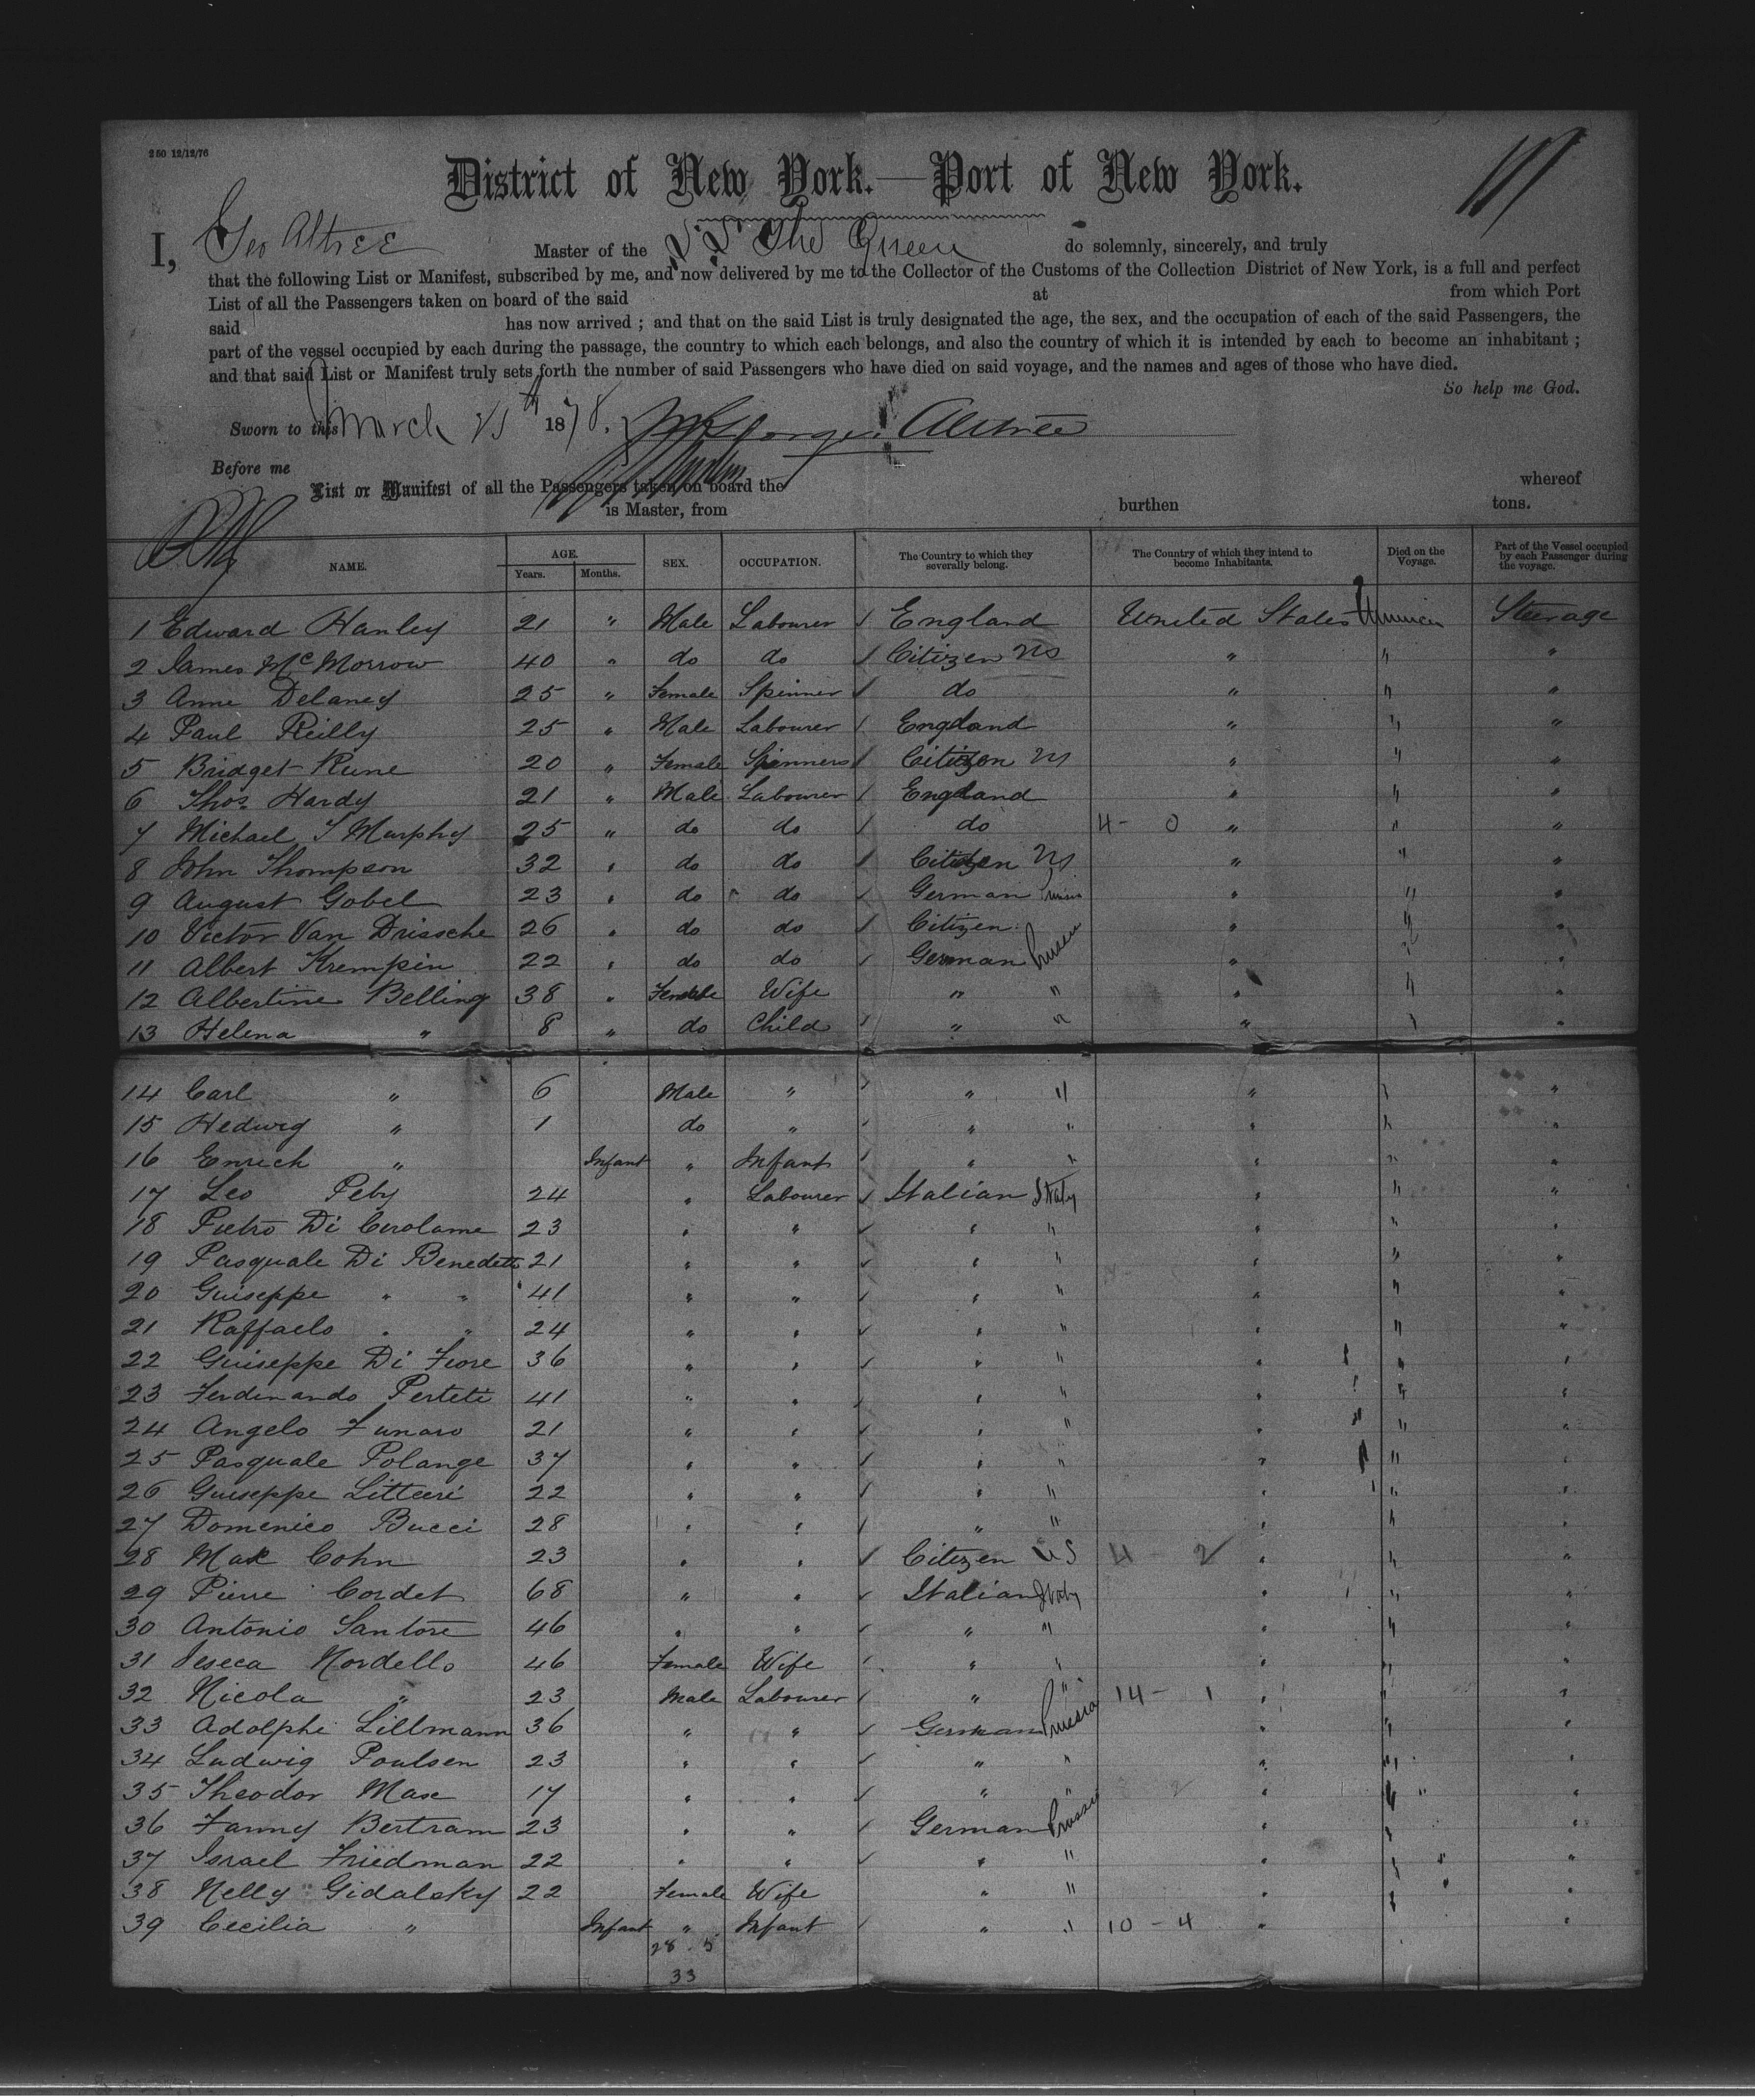 250 12/12/76
District of New York.—Port of New York.
I, Geo Altree Master of the S.S. The Queen do solemnly, sincerely, and truly
that the following List or Manifest, subscribed by me, and now delivered by me to the Collector of the Customs of the Collection District of New York, is a full and perfect
List of all the Passengers taken on board of the said at from which Port
said has now arrived ; and that on the said List is truly designated the age, the sex, and the occupation of each of the said Passengers, the
part of the vessel occupied by each during the passage, the country to which each belongs, and also the country of which it is intended by each to become an inhabitant ;
and that said List or Manifest truly sets forth the number of said Passengers who have died on said voyage, and the names and ages of those who have died.
So help me God.
Sworn to this March 1878. George Altree
Before me
List or Manifest of all the Passengers taken on board the whereof
is Master, from burthen tons.
NAME. AGE. Years. Months. SEX. OCCUPATION. The Country to which they severally belong. The Country of which they intend to become Inhabitants. Died on the Voyage. Part of the Vessel occupied by each Passenger during the voyage.
1 Edward Hanley 21 " Male Labourer / England United States Steerage
2 James McMorrow 40 " do do / Citizen US " " "
3 Anne Delaney 25 " Female Spinner / do " " "
4 Paul Reilly 25 " Male Labourer / England " " "
5 Bridget Rune 20 " Female Spinners / Citizen US " " "
6 Thos Hardy 21 " Male Labourer / England " " "
7 Michael T Murphy 25 " do do / do 4 - 0 " " "
8 John Thompson 32 " do do / Citizen US " " "
9 August Gobel 23 " do do / German Prussia " " "
10 Victor Van Drissche 26 " do do / Citizen " " "
11 Albert Krempin 22 " do do / German Prussia " " "
12 Albertine Belling 38 " Female Wife " " " " "
13 Helena " 8 " do Child / " " " " "
14 Carl " 6 Male " / " " " " "
15 Hedwig " 1 do " / " " " " "
16 Enrich " Infant " Infant / " " " " "
17 Leo Peby 24 " Labourer / Italian Italy " " "
18 Pietro Di Cirolame 23 " " / " " " " "
19 Pasquale Di Benedetti 21 " " / " " " " "
20 Guiseppe " " 41 " " / " " " " "
21 Raffaelo " " 24 " " / " " " " "
22 Guiseppe Di Fiore 36 " " / " " " " "
23 Ferdinando Perteti 41 " " / " " " " "
24 Angelo Funaro 21 " " / " " " " "
25 Pasquale Polange 37 " " / " " " " "
26 Guiseppe 22 " " / " " " " "
27 Domenico Bucci 28 " " / " " " " "
28 Max Cohn 23 " " / Citizen US 4 - 2 " " "
29 Pierre Cordet 68 " " / Italian Italy " " "
30 Antonio Santore 46 " " / " " " " "
31 Nordello 46 Female Wife / " " " " "
32 Nicola " 23 Male Labourer / " " 14 - 1 " " "
33 Adolphe Lillmann 36 " " / German Prussia " " "
34 Ludwig Poulsen 23 " " / " " " " "
35 Theodor Mase 17 " " / " " " " "
36 Fanny Bertram 23 " " / German Prussia " " "
37 Israel Friedman 22 " " / " " " " "
38 Nelly Gidalsky 22 Female Wife " " " " "
39 Cecilia " Infant " Infant / " " 10 - 4 " "
28 . 5
33